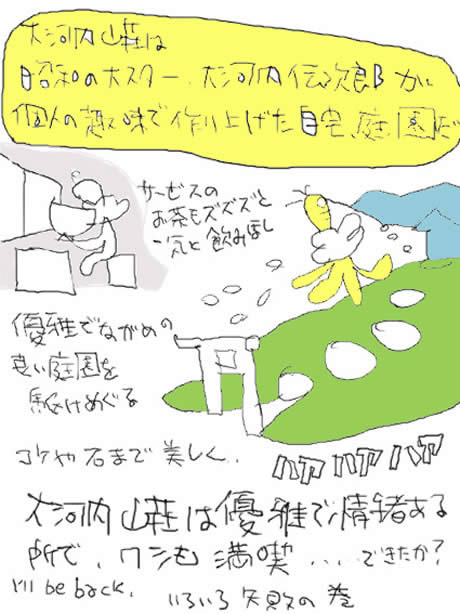 大河内山荘は
昭和の大スター、大河内伝次郎が
個人の趣味で作り上げた自宅庭園だ
サービスの
お茶もズズズと
一気と飲みほし
優雅でながめの
良い庭園を
駆けめぐる
コケや石まで美しく、
ハアハアハア
大河内山荘は優雅で情緒ある
所で、ワシも満喫....できたか?
I'll be back.
いろいろ失敗の巻